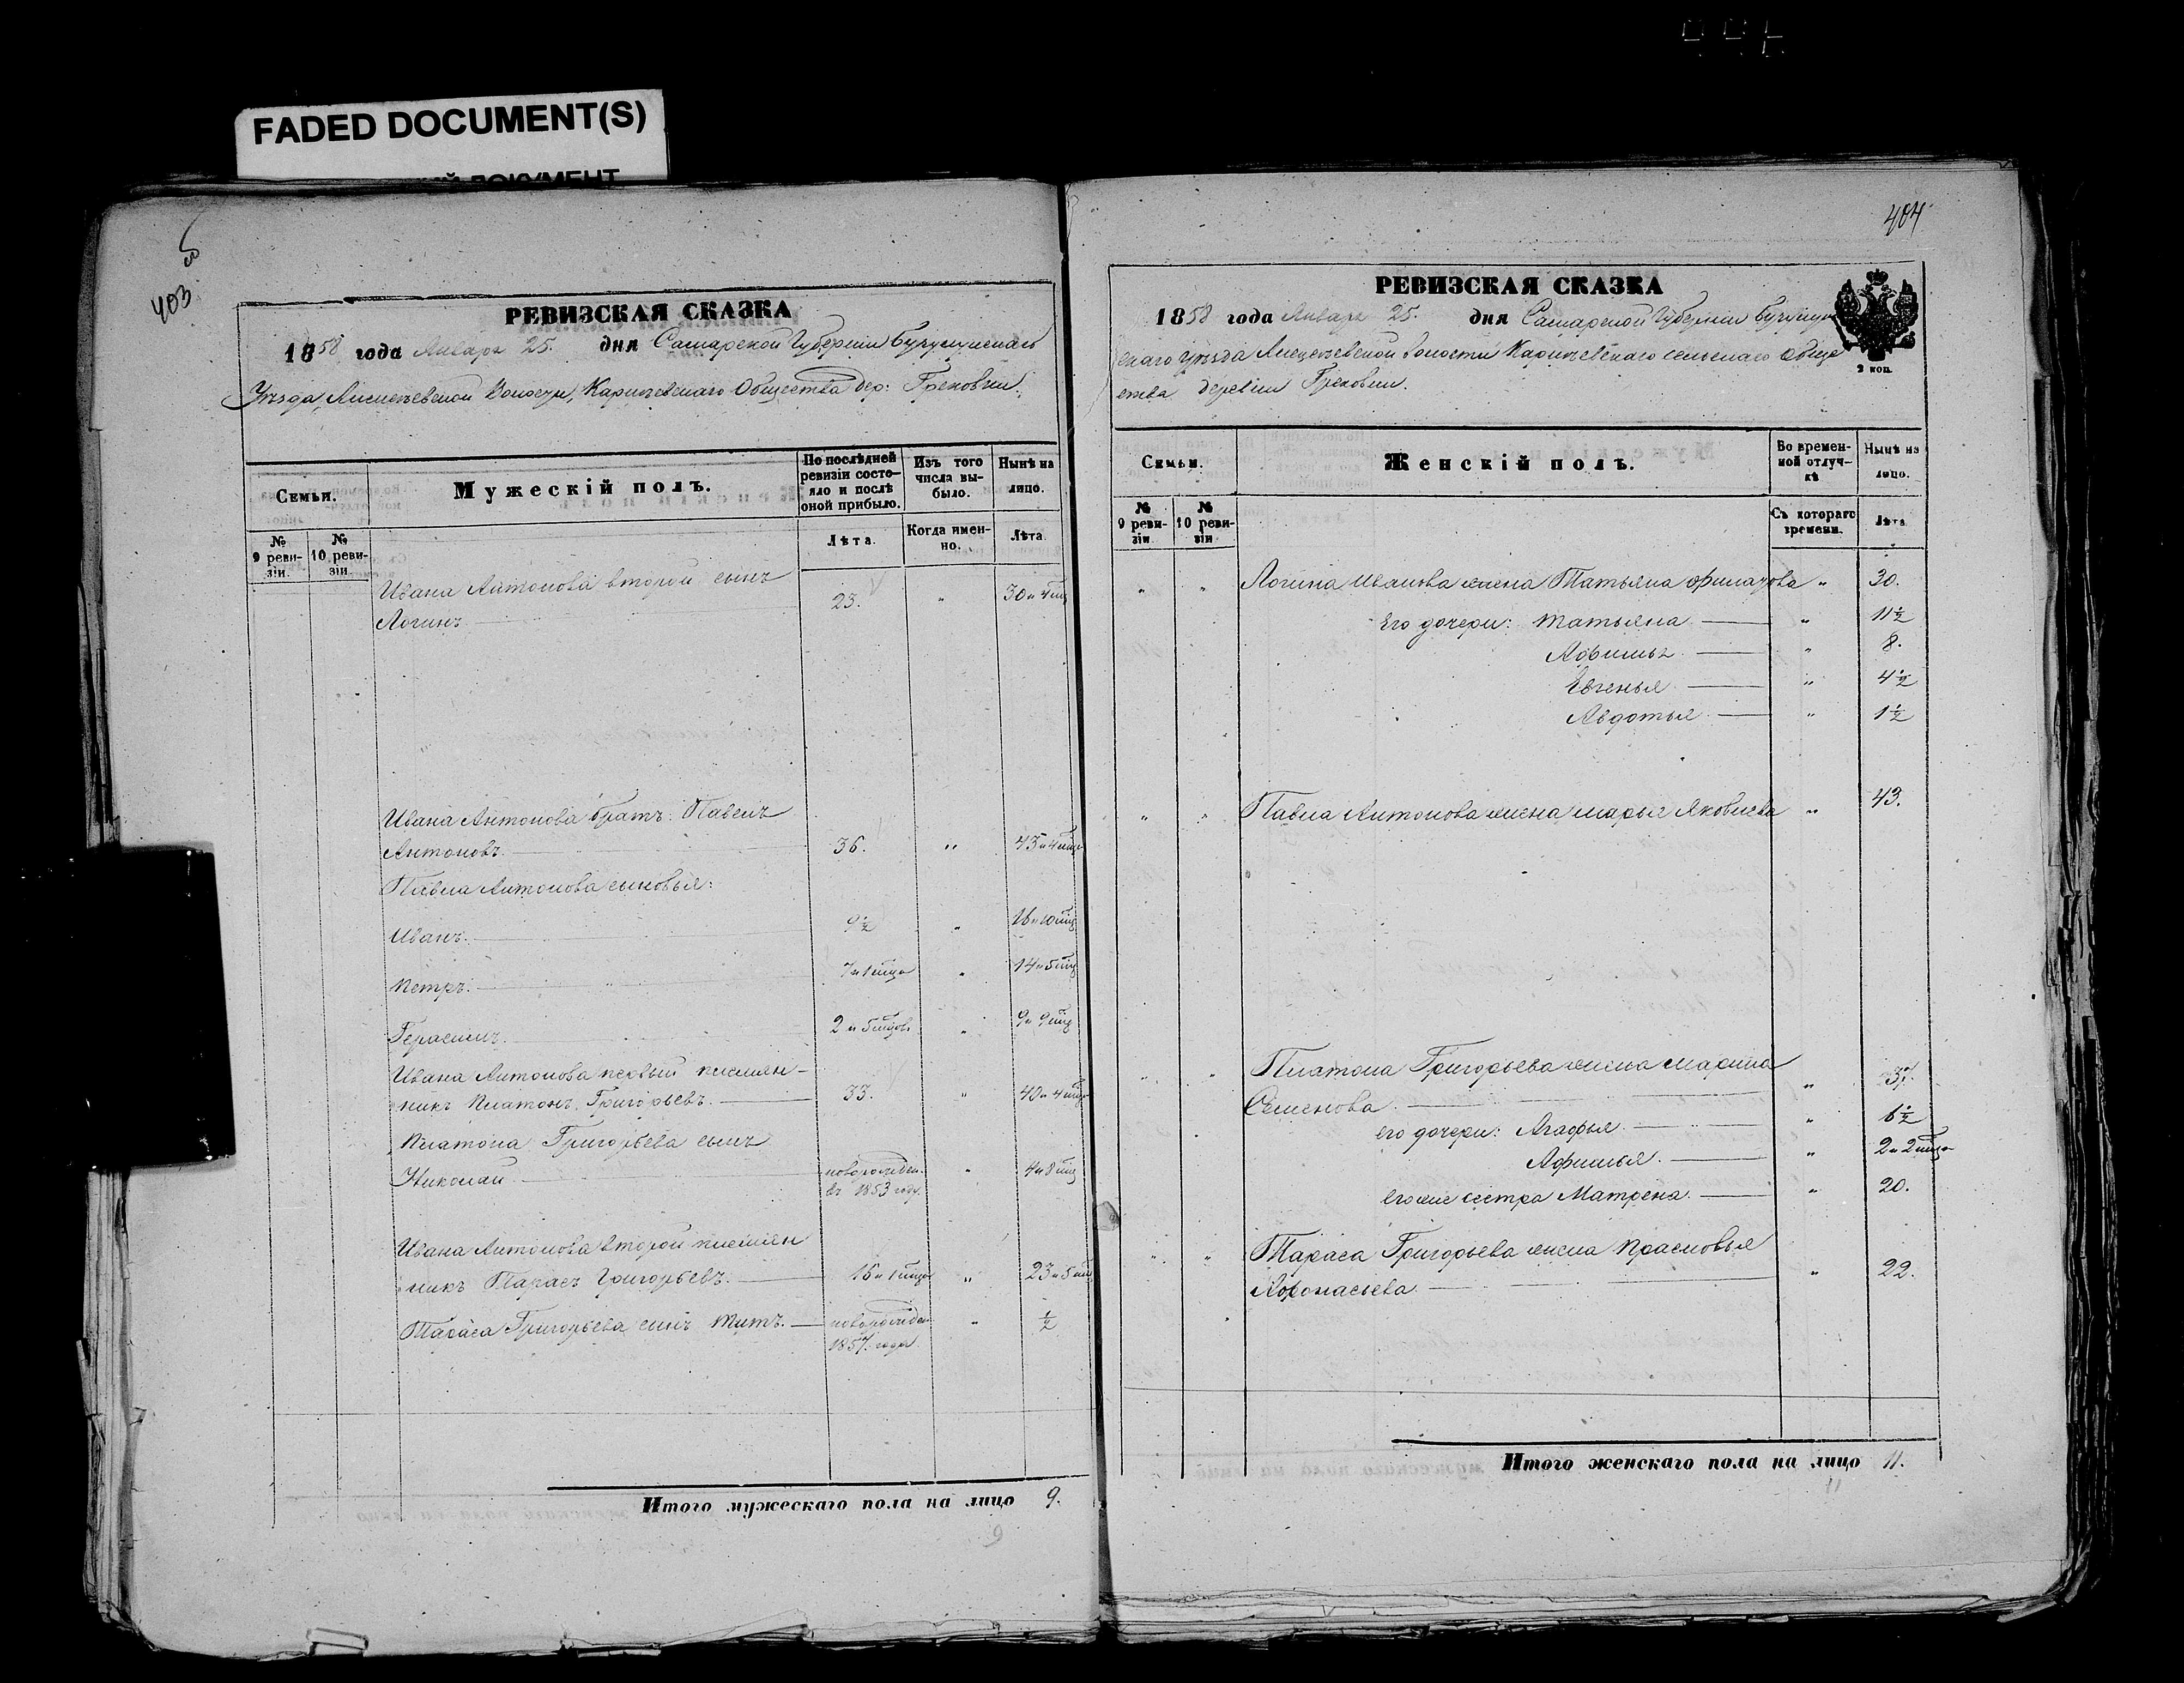 FADED DOCUMENT(S)
403
РЕВИЗСКАЯ СКАЗКА
1858 года Января 25. дня Самарской Губернии Бугульминскаго
Уѣзда, волости, Каришевскаго Общества дер: Грековки.
Семьи.
Мужескій полъ.
По послѣдней ревизіи состо-
яло и послѣ
оной прибыло.
Изъ того
числа вы-
было.
Нынѣ на
лицо.
№
9 реви-
зіи.
№
10 реви-
зіи.
Лѣта.
Когда имен-
но.
Лѣта.
Ивана Антонова второй сынъ
Логинъ 23. " 30 и 4 мц
Ивана Антонова братъ: Павелъ
Антоновъ 36. " 43 и 4 мц
Павла Антонова сыновья:
Иванъ. 9½ " 16 и 10 мц
Петръ. 7 и 1 мцъ " 14 и 5 мц
Герасимъ. 2 и 5 мцовъ " 9 и 9 мц
Ивана Антонова первый племян-
никъ Платонъ Григорьевъ. 33. " 40 и 4 мц
Платона Григорьева сынъ
Николай новорожден. " 4 и 8 мц
въ 1853 году.
Ивана Антонова второй племян
никъ Тарасъ Григорьевъ. 16 и 1 мцъ " 23 и 5 мц
Тараса Григорьева сынъ Титъ. новорожден " ½
1857. года
Итого мужескаго пола на лицо 9.
9
404
РЕВИЗСКАЯ СКАЗКА
1858 года Января 25. дня Самарской Губерніи Бугульмин
скаго уѣзда волости Каришевскаго сельскаго обще
ства деревни Грековки.
2 коп.
Семьи.
Женскій полъ.
Во времен-
ной отлуч-
кѣ
Нынѣ на
лицо.
№
9 реви-
зіи
№
10 реви-
зіи
Съ котораго
времени.
Лѣта
" " Логина Иванова жена Татьяна " 30.
Его дочери: Татьяна " 11½
Афимья " 8.
Евгенья " 4½
Авдотья " 1½
" " Павла Антонова жена Марья Яковлева " 43.
" " Платона Григорьева жена Марина
Семенова "
его дочери: Агафья " 6½
Афимья. " 2 и 2 мцъ
его же сестра Матрена. " 20.
" " Тараса Григорьева жена Прасковья
Афонасьева " 22.
Итого женскаго пола на лицо 11.
11